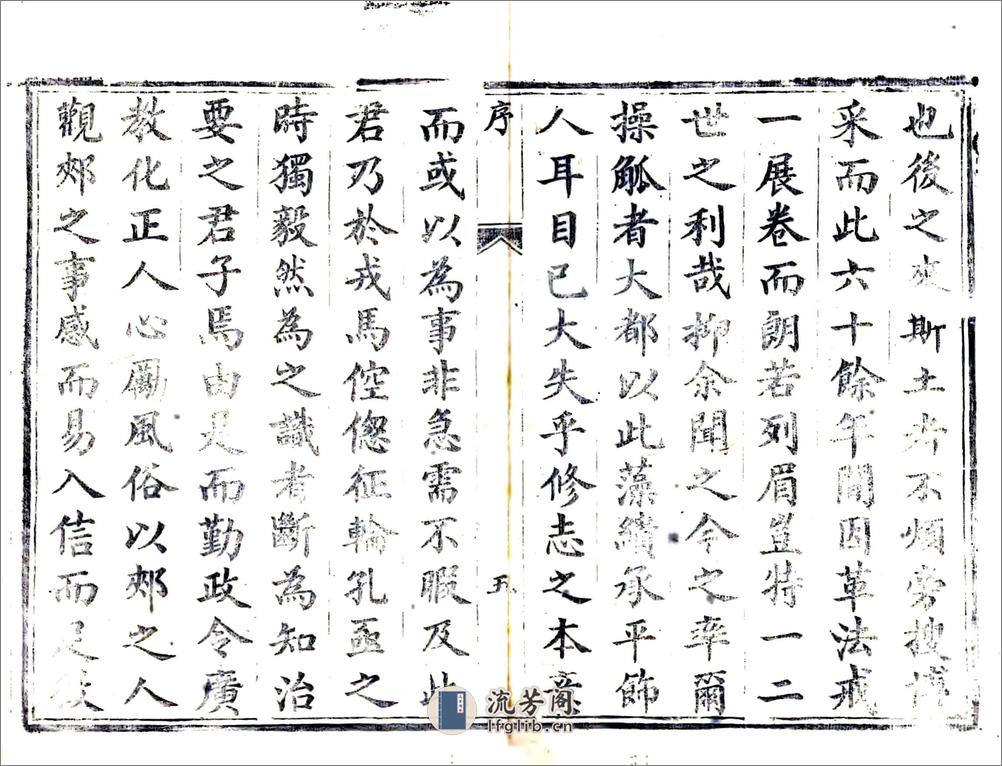 也後之來斯土者不煩旁搜博
采而此六十餘年間因革法戒
一展卷而朗若列眉豈特一二
世之利哉抑余聞之今之率爾
操觚者大都以此藻繢承平飾
人耳目已大失乎修志之本意
序 五
而或以為事非急需不暇及此
君乃於戎馬倥傯征輪孔亟之
時獨毅然為之識者斷為知治
要之君子焉由是而勤政令廣
教化正人心勵風俗以郟之人
觀郟之事感而易入信而足徵
流芳阁
lfglib.cn